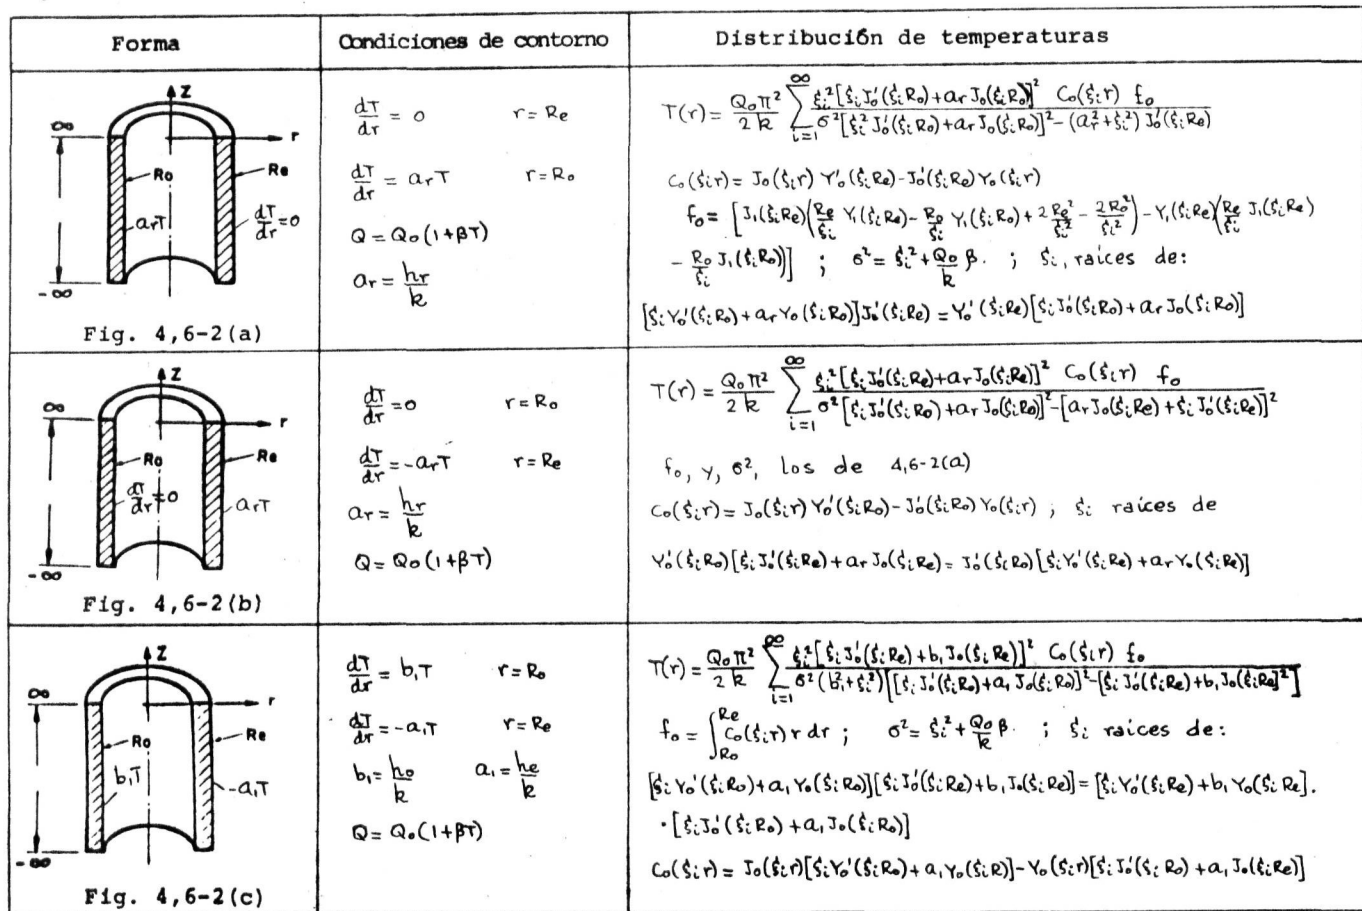 Forma
Condiciones de contorno
Distribución de temperaturas
Z
∞
r
Ro
Re
arT
dT/dr = 0
-∞
Fig. 4,6-2(a)
dT/dr = 0 r = Re
dT/dr = arT r = Ro
Q = Qo(1+βT)
ar = hr/k
T(r) = Qoπ²/2k ∑_{i=1}^{∞} ξi²[ξiJo'(ξiRo)+arJo(ξiRo)]² Co(ξir) fo / σ²[ξi²Jo'(ξiRo)+arJo(ξiRo)]²-(ar²+ξi²)Jo'(ξiRe)
Co(ξir) = Jo(ξir) Y'o(ξiRe)-Jo'(ξiRe)Yo(ξir)
fo = [J1(ξiRe)(Re/ξi Y1(ξiRe) - Ro/ξi Y1(ξiRo) + 2Re²/ξi² - 2Ro²/ξi²) - Y1(ξiRe)(Re/ξi J1(ξiRe)
- Ro/ξi J1(ξiRo))] ; σ² = ξi² + Qo/k β. ; ξi, raíces de:
[ξiYo'(ξiRo)+arYo(ξiRo)]Jo'(ξiRe) = Yo'(ξiRe)[ξiJo'(ξiRo)+arJo(ξiRo)]
Z
∞
r
Ro
Re
dT/dr = 0
arT
-∞
Fig. 4,6-2(b)
dT/dr = 0 r = Ro
dT/dr = -arT r = Re
ar = hr/k
Q = Qo(1+βT)
T(r) = Qoπ²/2k ∑_{i=1}^{∞} ξi²[ξiJo'(ξiRe)+arJo(ξiRe)]² Co(ξir) fo / σ²[ξiJo'(ξiRo)+arJo(ξiRo)]²-[arJo(ξiRe)+ξiJo'(ξiRe)]²
fo, y, σ², los de 4,6-2(a)
Co(ξir) = Jo(ξir)Yo'(ξiRo)-Jo'(ξiRo)Yo(ξir) ; ξi raíces de
Yo'(ξiRo)[ξiJo'(ξiRe)+arJo(ξiRe) = Jo'(ξiRo)[ξiYo'(ξiRe)+arYo(ξiRe)]
Z
∞
r
Ro
Re
b1T
-a1T
-∞
Fig. 4,6-2(c)
dT/dr = b1T r = Ro
dT/dr = -a1T r = Re
b1 = ho/k a1 = he/k
Q = Qo(1+βT)
T(r) = Qoπ²/2k ∑_{i=1}^{∞} ξi²[ξiJo'(ξiRe)+b1Jo(ξiRe)]² Co(ξir) fo / σ²(b1²+ξi²)[[ξiJo'(ξiRo)+a1Jo(ξiRo)]²-[ξiJo'(ξiRe)+b1Jo(ξiRe]²]
fo = ∫_{Ro}^{Re} Co(ξir) r dr ; σ² = ξi² + Qo/k β. ; ξi raíces de:
[ξiYo'(ξiRo)+a1Yo(ξiRo)][ξiJo'(ξiRe)+b1Jo(ξiRe] = [ξiYo'(ξiRe)+b1Yo(ξiRe].
·[ξiJo'(ξiRo)+a1Jo(ξiRo)]
Co(ξir) = Jo(ξir)[ξiYo'(ξiRo)+a1Yo(ξiR)]-Yo(ξir)[ξiJo'(ξiRo)+a1Jo(ξiRe)]